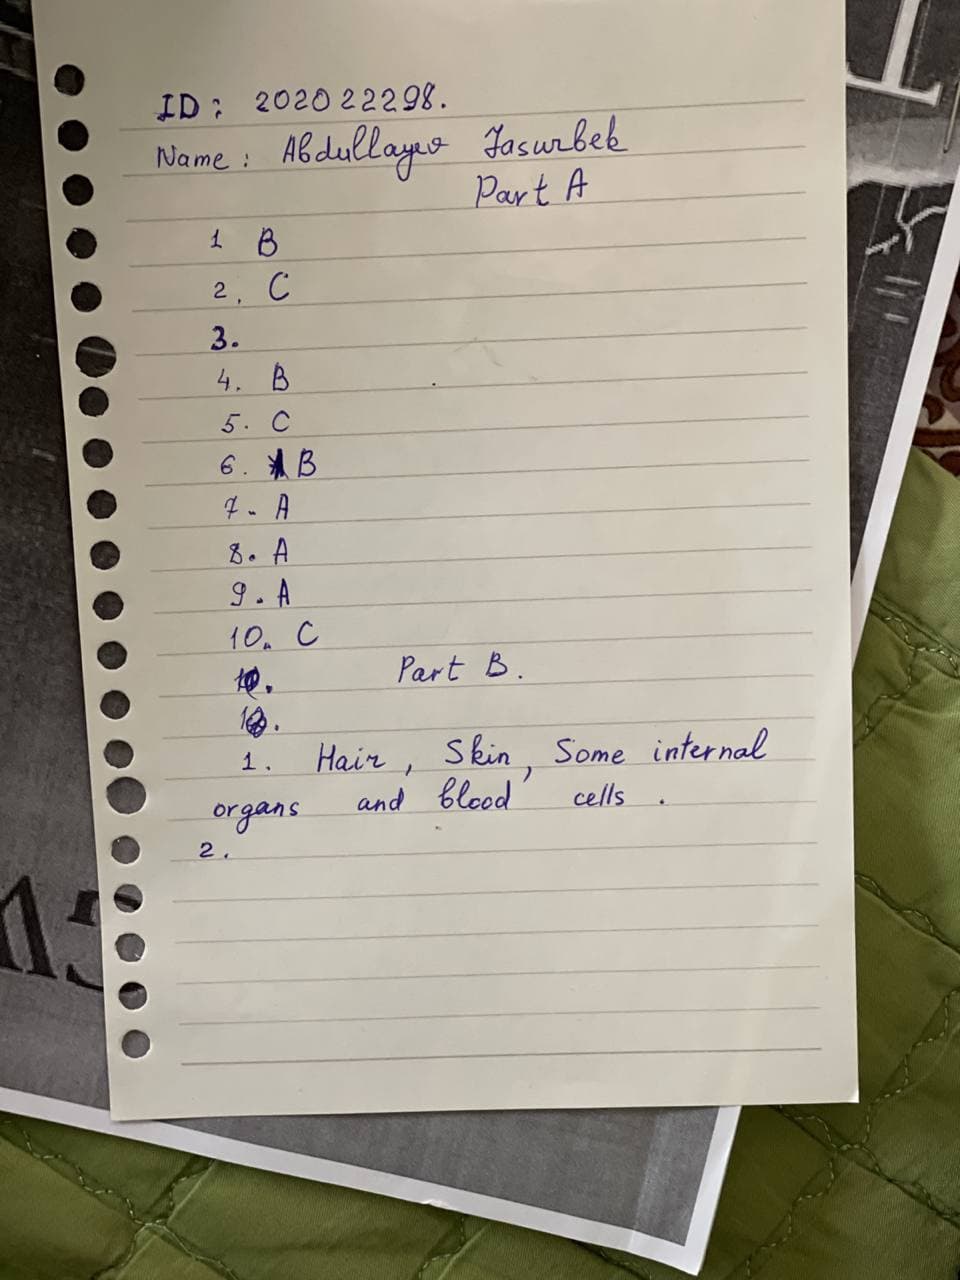 ID: 202022298.
Name: Abdullayev Jasurbek
Part A
1 B
2. C
3.
4. B
5. C
6. B
7. A
8. A
9. A
10. C
Part B.
1. Hair, Skin, Some internal
organs and blood cells.
2.